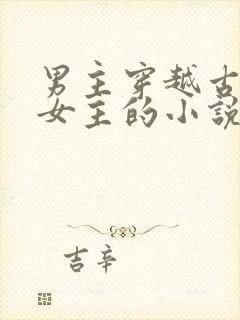 男主穿越古
女主的小説
吉辛